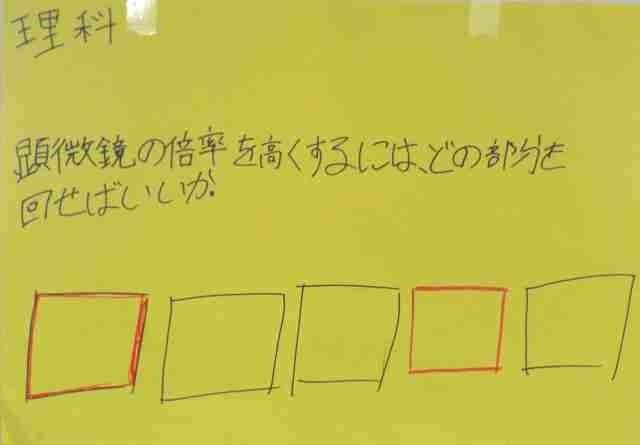 理科
顕微鏡の倍率を高くするには、どの部分を
回せばいいか。